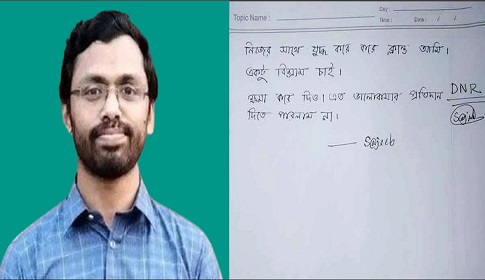 Topic Name :
Day :
Time :
Date : / /
নিজের সাথে যুদ্ধ করে করে ক্লান্ত আমি।
একটু বিশ্রাম চাই।
ক্ষমা করে দিও। এত ভালোবাসার প্রতিদান
দিতে পারলাম না।
DNR
Sajeeb
— Sajeeb